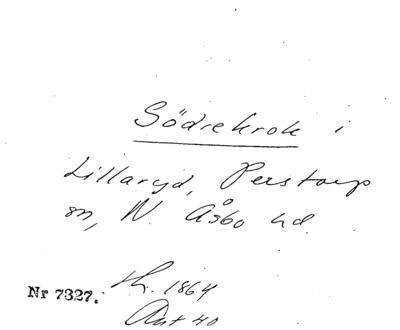 Södrekrok i
Lillaryd, Perstorp
sn, N. Åsbo hd
Nr 7327. 1864
Ant 40